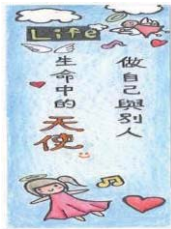 Life
做自己與別人
生命中的天使